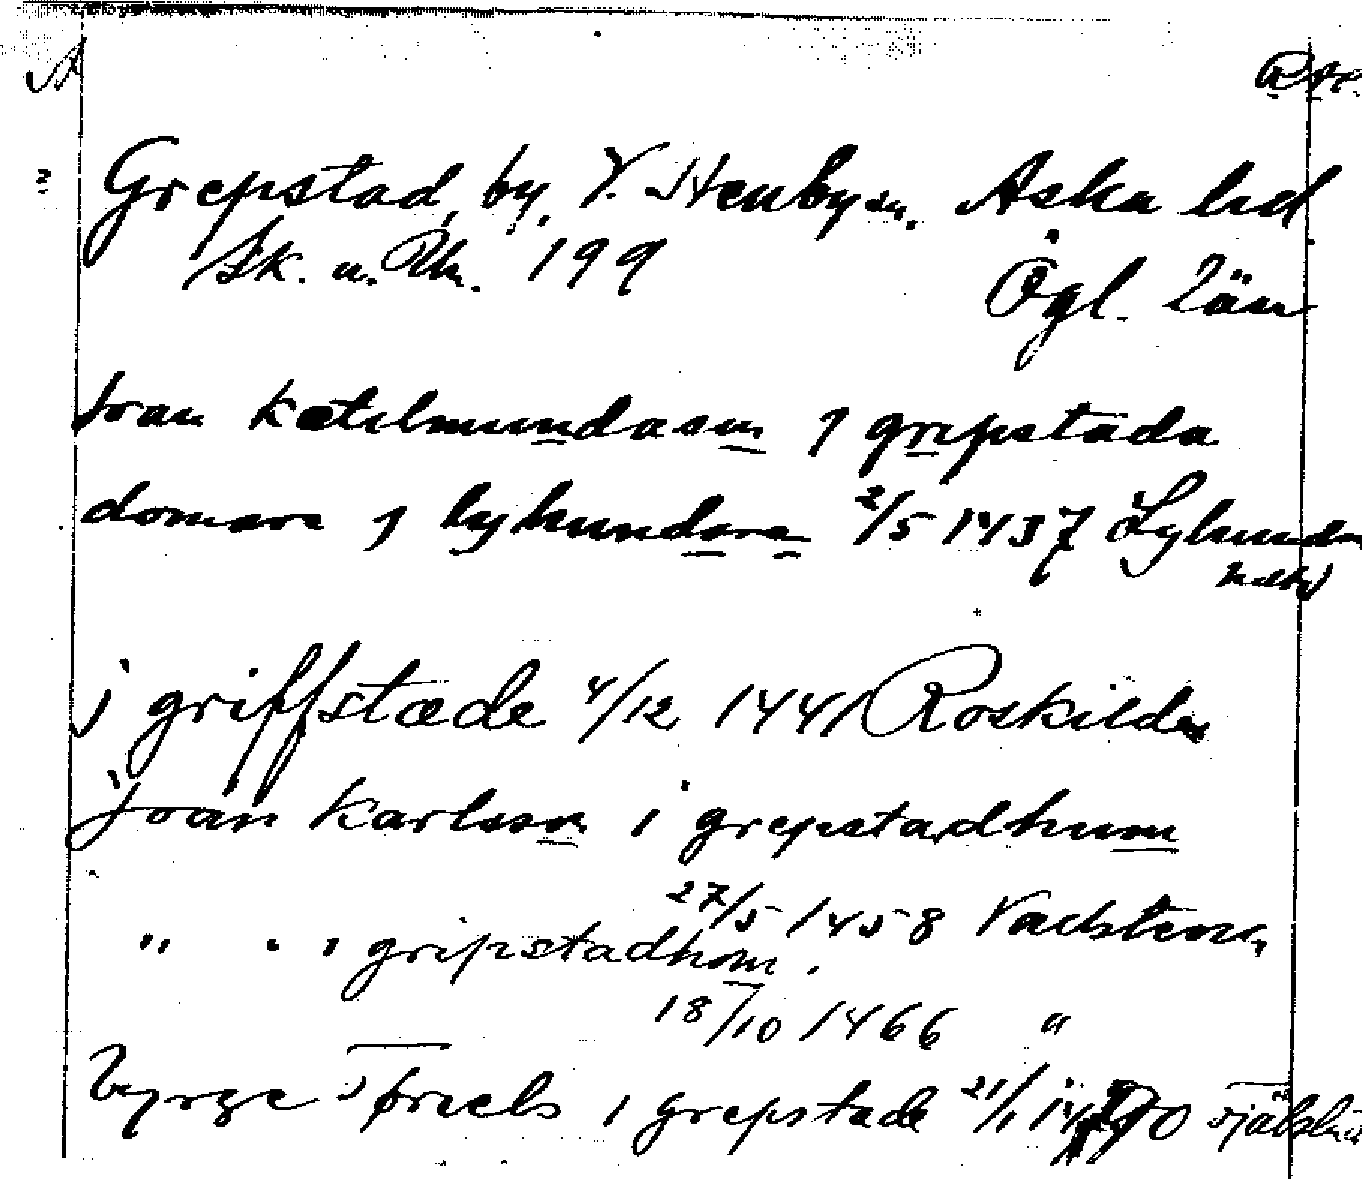 Grepstad, by, V. Stenby sn. Aska hd.
Sk. u. 199 Ögl. län
Joan Kætilmundason j gripstada
domare j lyhundara 2/5 1437 Lyhundra
j griffstæde 4/12 1441 Roskilde
Joan Karlsson i grepstadhum
27/5 1458 Vadstena
" " " gripstadhom.
18/10 1466 "
byrge i grepstade 21/1